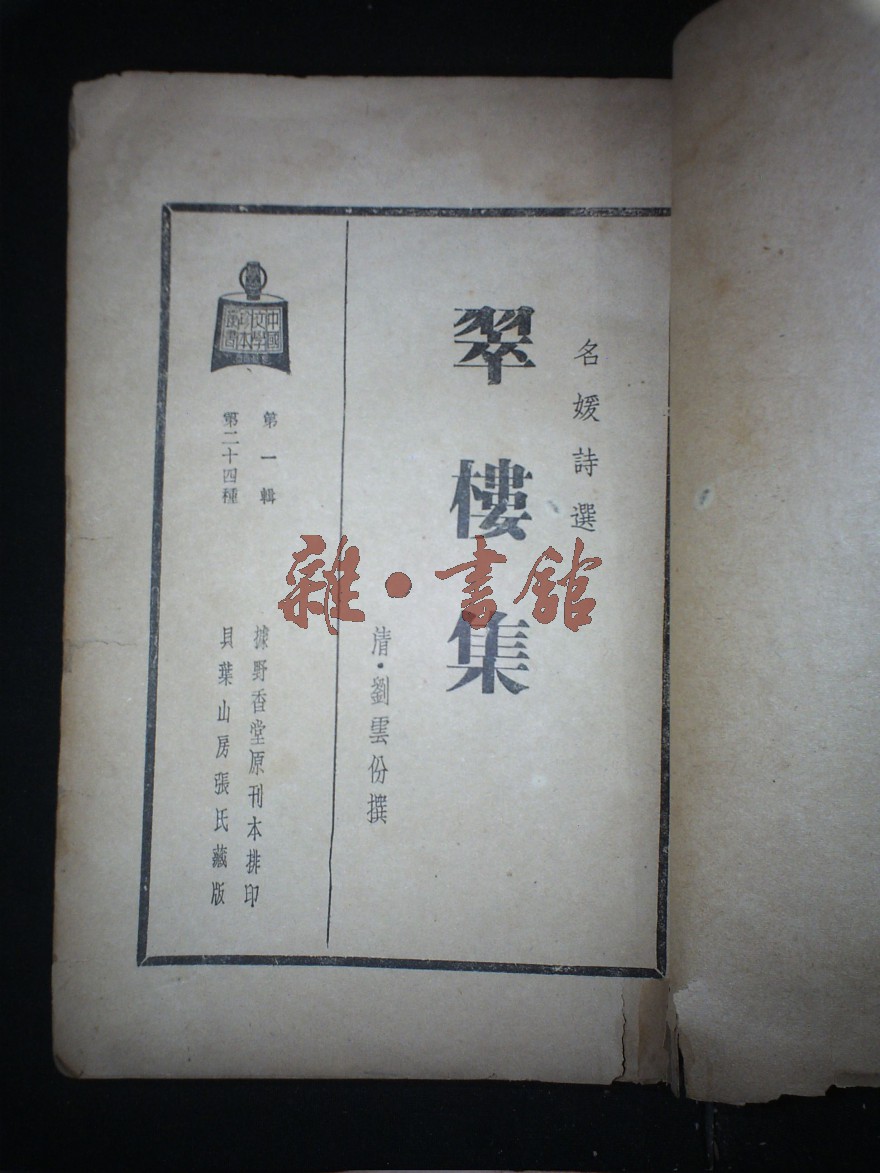 名媛詩選
翠樓集
清·劉雲份撰
中國
文學
珍本
叢書
第一輯
第二十四種
據野香堂原刊本排印
貝葉山房張氏藏版
雜·書館